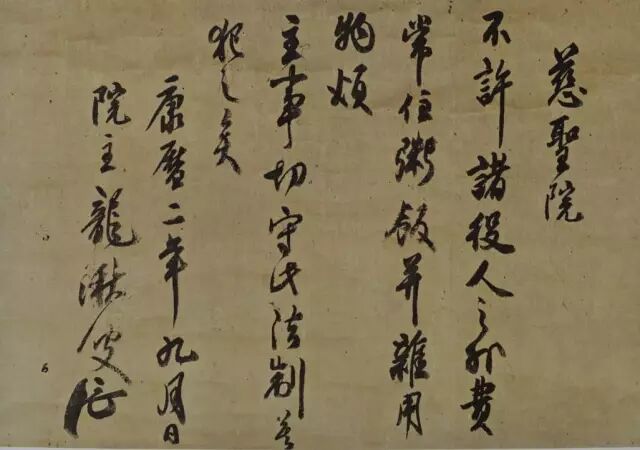 慈聖院
不許諸役人之外費
常住粥飯并雜用
物煩
主事切守此法制莫
犯之矣
康暦二年九月日
院主龍湫叟